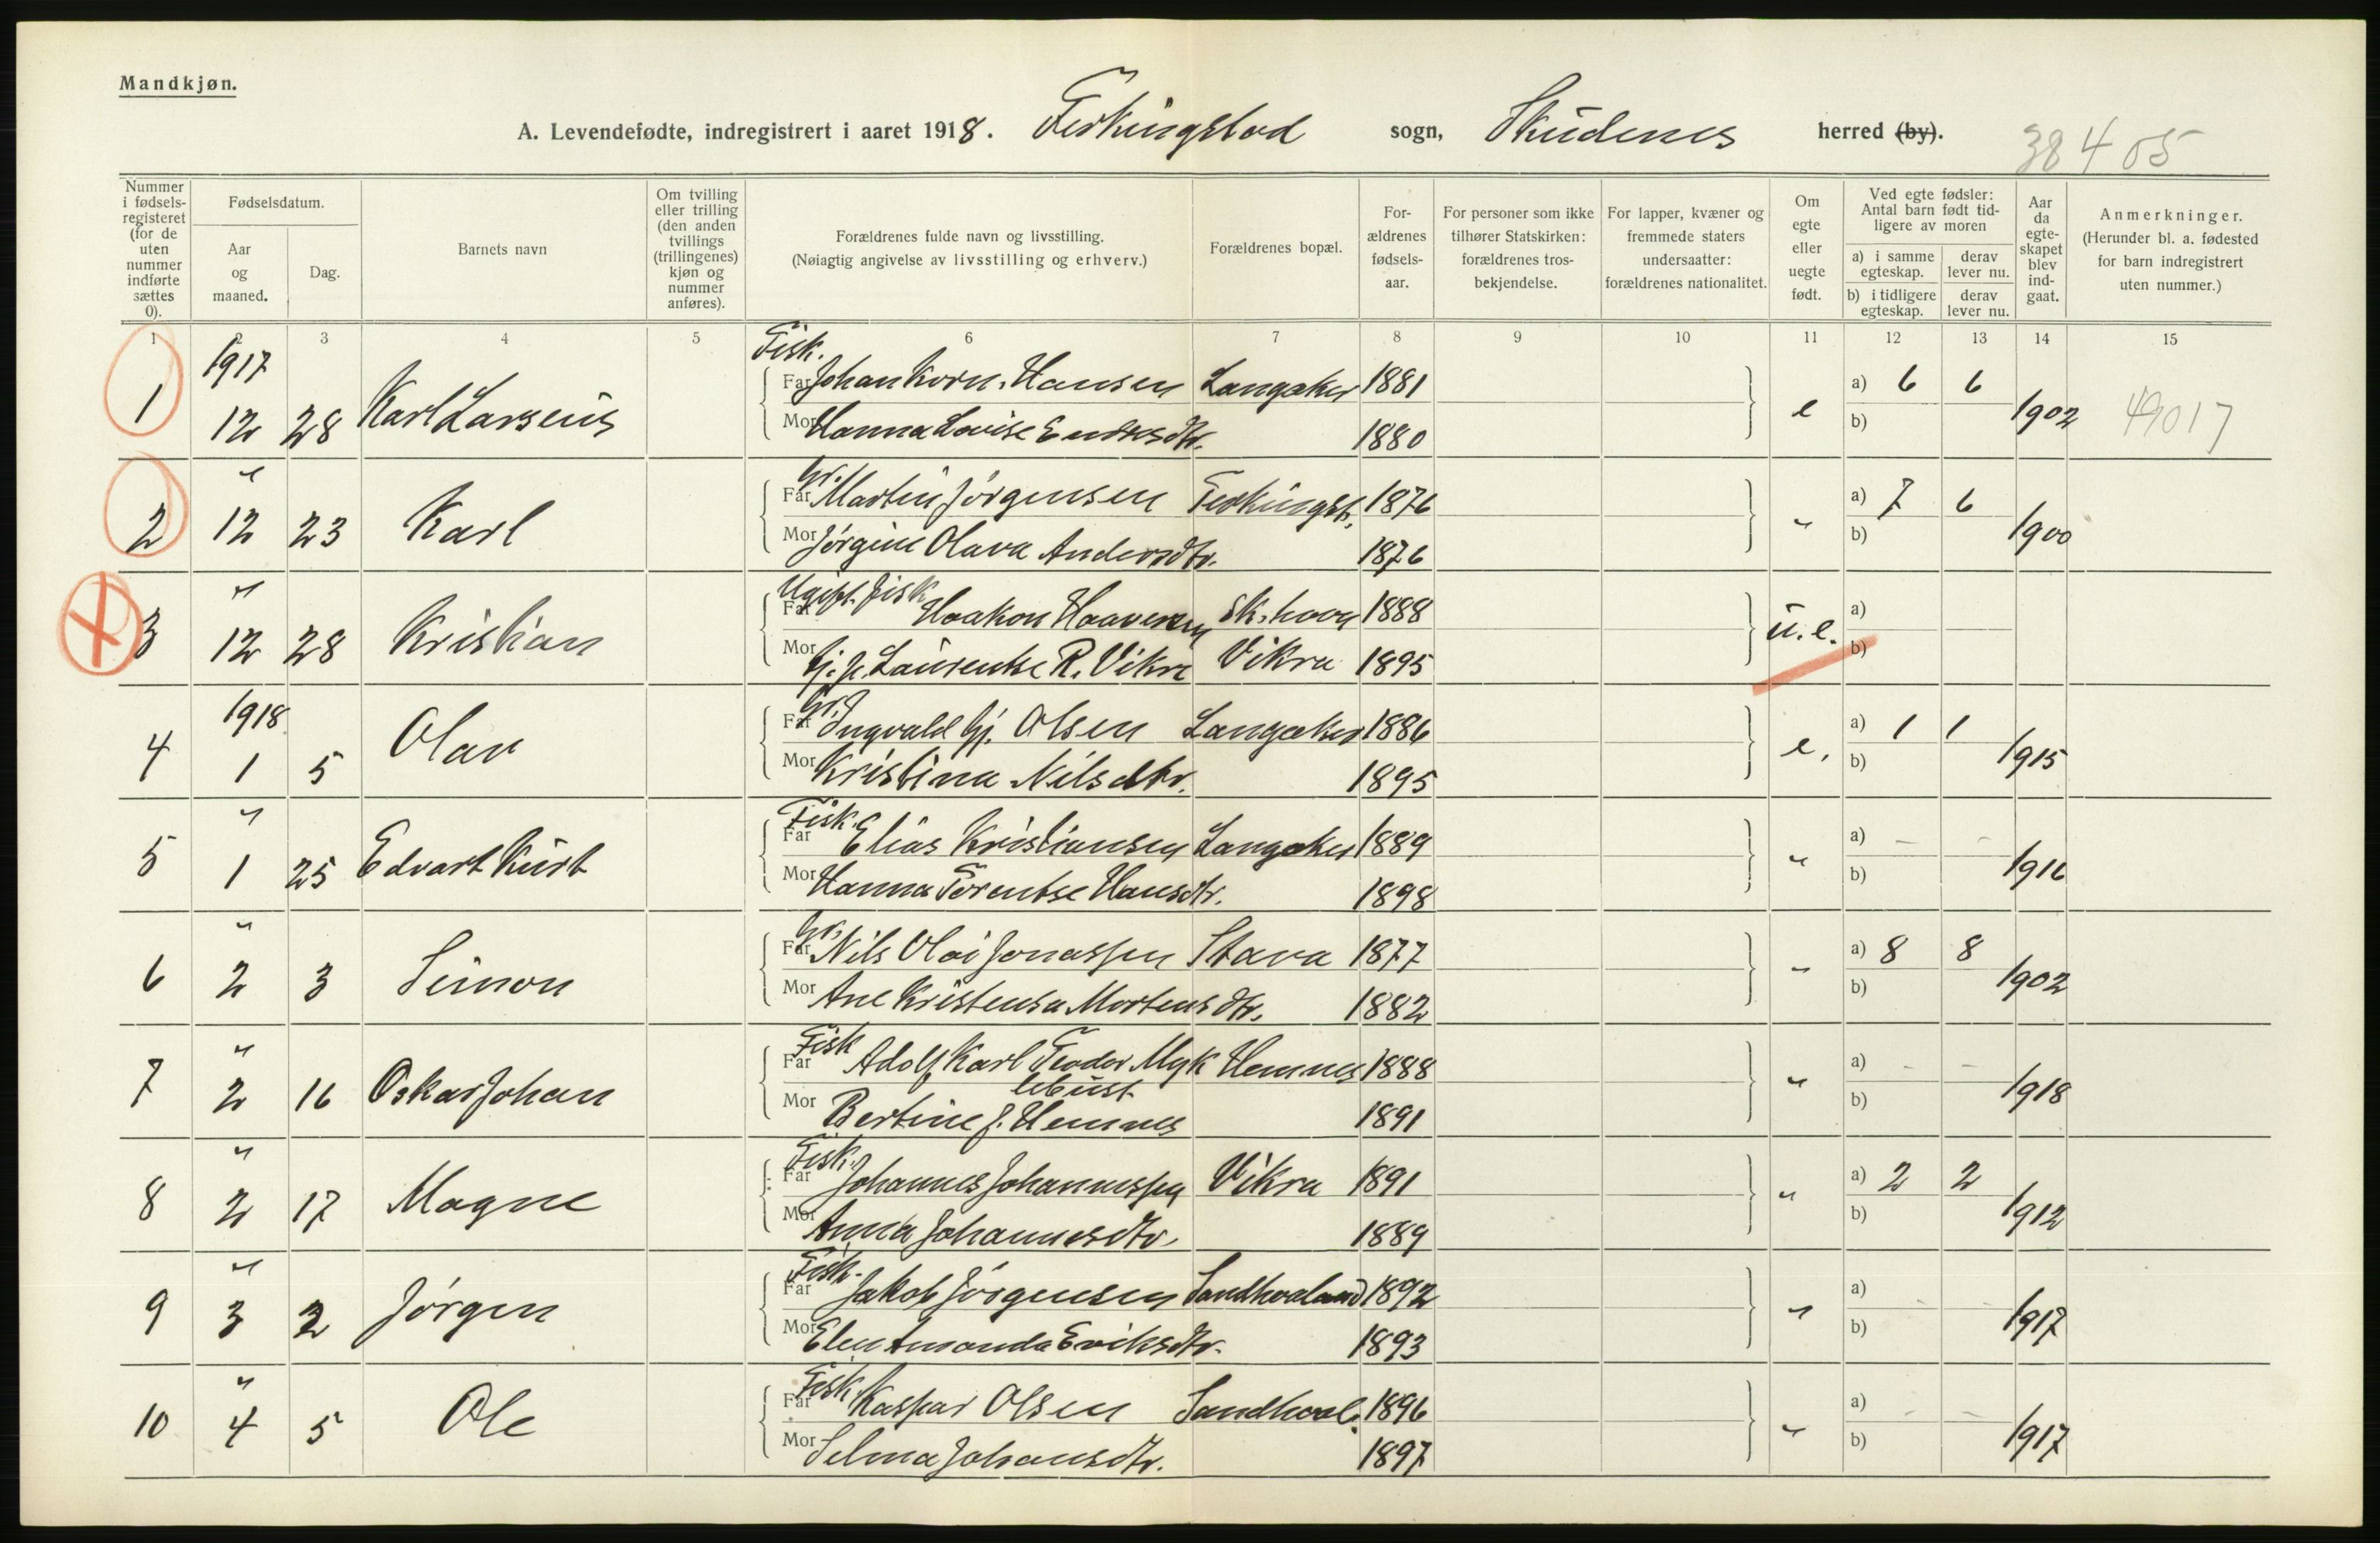 Mandkjøn.
A. Levendefødte, indregistrert i aaret 1918. Ferkingstad sogn, Skudenes herred (by). 38405
Nummer i fødselsregisteret (for de uten nummer indførte sættes 0).
Fødselsdatum.
Aar og maaned.
Dag.
Barnets navn
Om tvilling eller trilling (den anden tvillings (trillingenes) kjøn og nummer anføres).
Forældrenes fulde navn og livsstilling. (Nøiagtig angivelse av livsstilling og erhverv.)
Forældrenes bopæl.
Forældrenes fødselsaar.
For personer som ikke tilhører Statskirken: forældrenes trosbekjendelse.
For lapper, kvæner og fremmede staters undersaatter: forældrenes nationalitet.
Om egte eller uegte født.
Ved egte fødsler: Antal barn født tidligere av moren
a) i samme egteskap. derav lever nu.
b) i tidligere egteskap. derav lever nu.
Aar da egteskapet blev indgaat.
Anmerkninger. (Herunder bl. a. fødested for barn indregistrert uten nummer.)
1 2 3 4 5 6 7 8 9 10 11 12 13 14 15
1 1917 12 28 Karl Larseius Fisk. Far Johan Korn. Hansen Langaker 1881 e a) 6 6 1902 49017
Mor Hanna Lovise Endresdtr. 1880 b)
2 " 12 23 Karl Gr. Far Martin Jørgensen Ferkingst. 1876 " a) 7 6 1900
Mor Jørgine Olava Andersdtr. 1876 b)
3 " 12 28 Kristian Ugift Fisk Far Haakon Haavensen Sk.havn 1888 u.e. a)
Mor Gj. p. Laurentse R. Vikra Vikra 1895 b)
4 1918 1 5 Olav Gr. Far Ingvald Gj. Olsen Langaker 1886 e. a) 1 1 1915
Mor Kristina Nilsdtr. 1895 b)
5 " 1 25 Edvart Kurt Fisk. Far Elias Kristiansen Langaker 1889 " a) - - 1916
Mor Hanna Torentse Hansdtr. 1898 b)
6 " 2 3 Simon Gr. Far Nils Olai Jonassen Stava 1877 " a) 8 8 1902
Mor Ane Kristensa Mortensdtr. 1882 b)
7 " 2 16 Oskar Johan Fisk Far Adolf Karl Teodor Myk Hemnes 1888 " a) - - 1918
lebust
Mor Bertine J. Hemnes 1891 b)
8 " 2 17 Magne Fisk. Far Johannes Johannessen Vikra 1891 " a) 2 2 1912
Mor Anna Johannesdtr. 1889 b)
9 " 3 2 Jørgen Fisk. Far Jakob Jørgensen Sandhaaland 1892 " a) - - 1917
Mor Elen Amanda Eriksdtr. 1893 b)
10 " 4 5 Ole Fisk Far Kaspar Olsen Sandhaal. 1896 " a) - - 1917
Mor Selma Johansdtr. 1897 b)